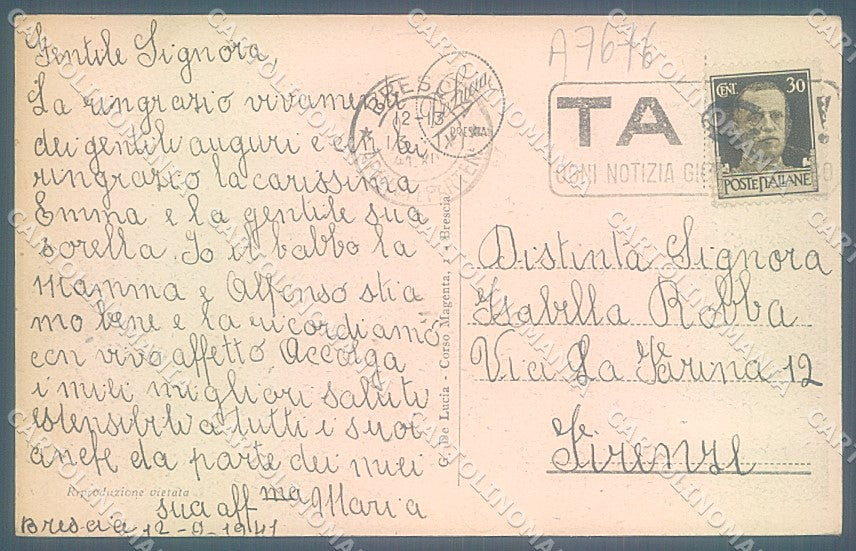 Gentile Signora,
La ringrazio vivamente
dei gentili auguri e con lei
ringrazio la carissima
Emma e la gentile sua
sorella. Io il babbo la
mamma e Alfonso stia
mo bene e la ricordiamo
con vivo affetto Accolga
i miei migliori saluti
estensibili a tutti i suoi
anche da parte dei miei
sua aff ma Maria
Brescia 12-9-1941
Riproduzione vietata
G. De Lucia Corso Magenta, Brescia
A7676
BRES
12-13
De Lucia
BRESCIA
TA
OGNI NOTIZIA GIO
!
CENT. 30
POSTE ITALIANE
Distinta Signora
Isabella Robba
Via La Farina 12
Firenze
CARTOLINOMANIA